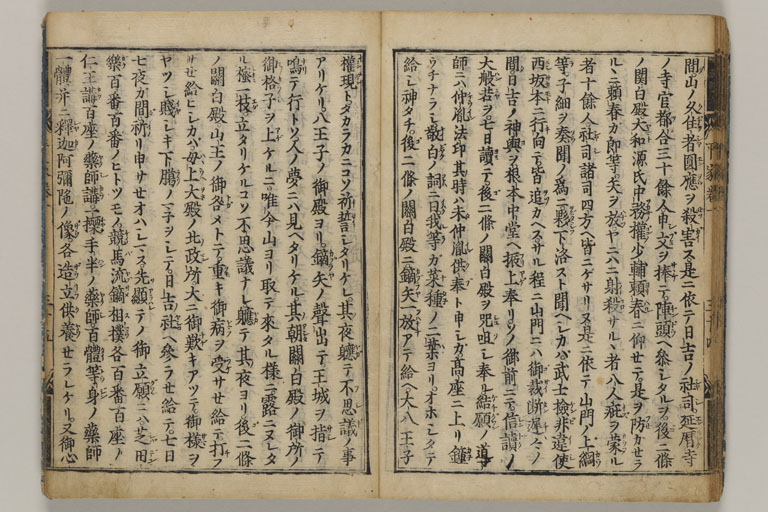 間山ノ久住者圓應ヲ殺害ス是ニ依テ日吉ノ社司延曆寺
ノ寺官都合三十餘人申文ヲ捧テ陣頭ヘ參シタルヲ後二條
ノ關白殿大和源氏中務權少輔頼春ニ仰セテ是ヲ防カセラ
ルニ頼春カ郎等矢ヲ放ヤニハニ射殺サルヽ者八人疵ヲ蒙ル
者十餘人社司諸司四方ヘ皆ニケサリヌ是ニ依テ山門ノ上綱
等子細ヲ奏聞ノ爲ニ下洛スト聞ヘシカハ武士檢非違使
西坂本ニ行向テ皆追カヘサル程ニ山門ニハ御裁斷遲々ノ
間日吉ノ神輿ヲ根本中堂ヘ振上奉リソノ御前ニテ信讀ノ
大般若ヲ七日讀テ後二條ノ關白殿ヲ呪咀シ奉ル結願ノ導
師ニハ仲胤法印其時ハ未仲胤供奉ト申シカ高座ニ上リ鐘
ウチナラシ敬白ノ詞ニ曰我等カ菜種ノ二葉ヨリオホシタテ
給シ神タチ後二條ノ關白殿ニ鏑矢一放アテ給ヘ大八王子
權現トタカラカニコソ祈誓シタリケレ其夜軈テ不思議ノ事
アリケリ八王子ノ御殿ヨリ鏑矢ノ聲出テ王城ヲ指テ
鳴テ行トソ人ノ夢ニハ見ヘタリケル其朝關白殿ノ御所ノ
御格子ヲ上ケルニ唯今山ヨリ取テ來タル樣ニ露ニヌレタ
ル樒一枝立タリケルコソ不思議ナレ軈テ其夜ヨリ後二條
ノ關白殿山王ノ御咎メトテ重キ御病ヲ受サセ給テ打フ
サセ給ヒシカハ母上大殿ノ北政所大ニ御歎キアツテ御樣ヲ
ヤツシ賤シキ下﨟ノマ子ヲシテ日吉ノ社ヘ參ラセ給テ七日
七夜カ間祈リ申サセオハシマス先顯テノ御立願ニハ芝田
樂百番百番ノヒトツモノ競馬流鏑相撲各百番百座ノ
仁王講百座ノ藥師講一搩手半ノ藥師百體等身ノ藥師
一體并ニ釋迦阿彌陀ノ像各造立供養セラレケリ又御心
三十五